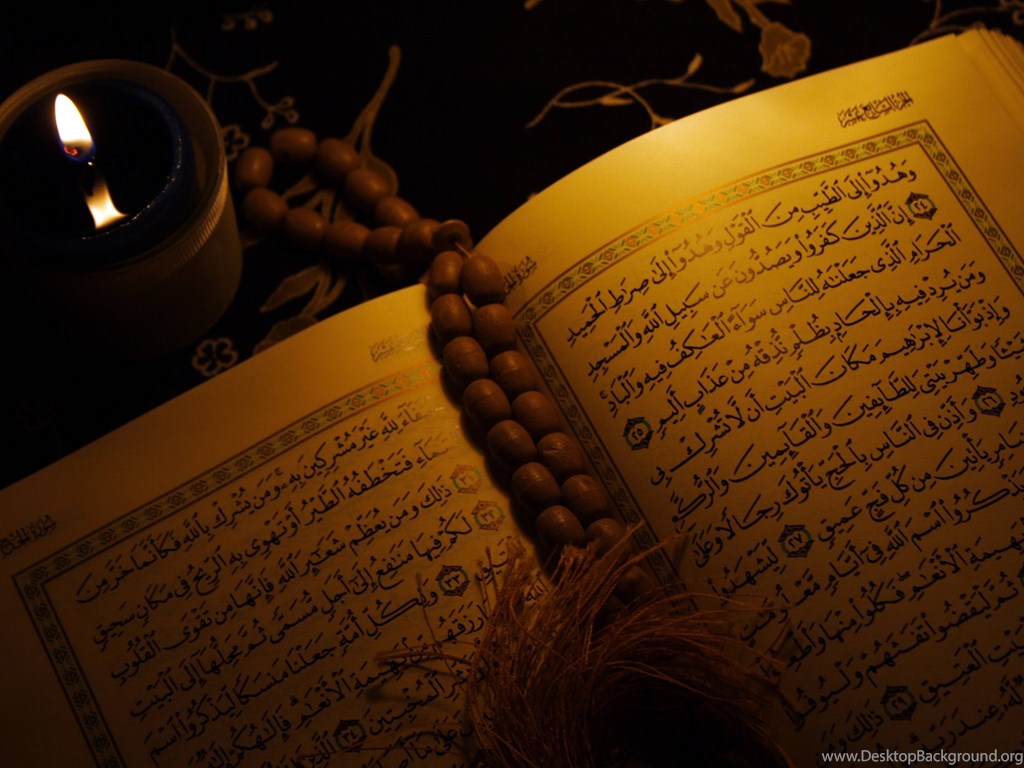 الجزء السابع عشر
سورة الحج
وَهُدُوٓا۟ إِلَى ٱلطَّيِّبِ مِنَ ٱلْقَوْلِ وَهُدُوٓا۟ إِلَىٰ صِرَٰطِ ٱلْحَمِيدِ
٢٤ إِنَّ ٱلَّذِينَ كَفَرُوا۟ وَيَصُدُّونَ عَن سَبِيلِ ٱللَّهِ وَٱلْمَسْجِدِ
ٱلْحَرَامِ ٱلَّذِى جَعَلْنَٰهُ لِلنَّاسِ سَوَآءً ٱلْعَٰكِفُ فِيهِ وَٱلْبَادِ
وَمَن يُرِدْ فِيهِ بِإِلْحَادٍۭ بِظُلْمٍ نُّذِقْهُ مِنْ عَذَابٍ أَلِيمٍ ٢٥
وَإِذْ بَوَّأْنَا لِإِبْرَٰهِيمَ مَكَانَ ٱلْبَيْتِ أَن لَّا تُشْرِكْ بِى
وَطَهِّرْ بَيْتِىَ لِلطَّآئِفِينَ وَٱلْقَآئِمِينَ وَٱلرُّكَّعِ
٢٦ وَأَذِّن فِى ٱلنَّاسِ بِٱلْحَجِّ يَأْتُوكَ رِجَالًا وَعَلَىٰ
يَأْتِينَ مِن كُلِّ فَجٍّ عَمِيقٍ ٢٧ لِّيَشْهَدُوا۟
ٱسْمَ ٱللَّهِ فِىٓ أَيَّامٍ
بَهِيمَةِ ٱلْأَنْعَٰمِ فَكُلُوا۟ مِنْهَا
ثُمَّ لْيَقْضُوا۟ تَفَثَهُمْ وَلْيُوفُوا۟
ٱلْعَتِيقِ ٢٩ ذَٰلِكَ
سورة الحج
حُنَفَآءَ لِلَّهِ غَيْرَ مُشْرِكِينَ بِهِۦ وَمَن يُشْرِكْ بِٱللَّهِ فَكَأَنَّمَا خَرَّ مِنَ
ٱلسَّمَآءِ فَتَخْطَفُهُ ٱلطَّيْرُ أَوْ تَهْوِى بِهِ ٱلرِّيحُ فِى مَكَانٍ سَحِيقٍ
٣١ ذَٰلِكَ وَمَن يُعَظِّمْ شَعَٰٓئِرَ ٱللَّهِ فَإِنَّهَا مِن تَقْوَى ٱلْقُلُوبِ
٣٢ لَكُمْ فِيهَا مَنَٰفِعُ إِلَىٰٓ أَجَلٍ مُّسَمًّى ثُمَّ مَحِلُّهَآ إِلَى ٱلْبَيْتِ
٣٣ وَلِكُلِّ أُمَّةٍ جَعَلْنَا مَنسَكًا لِّيَذْكُرُوا۟ ٱسْمَ
رَزَقَهُم مِّنۢ بَهِيمَةِ ٱلْأَنْعَٰمِ فَإِلَٰهُكُمْ
ٱلْمُخْبِتِينَ ٣٤ ٱلَّذِينَ
www.DesktopBackground.org